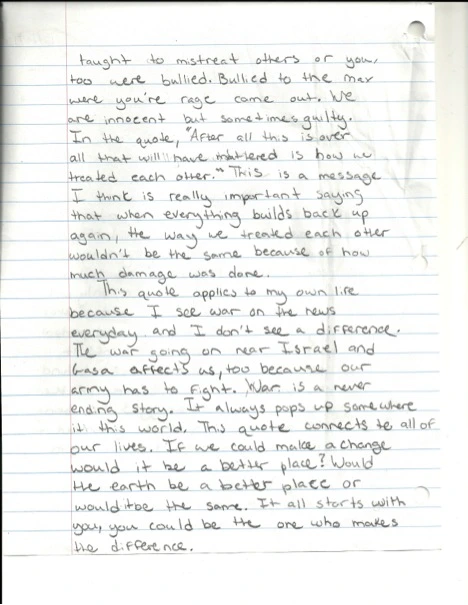 taught to mistreat others or you,
too were bullied. Bullied to the max
were you're rage come out. We
are innocent but sometimes guilty.
In the quote, "After all this is over
all that will have mattered is how we
treated each other." This is a message
I think is really important saying
that when everything builds back up
again, the way we treated each other
wouldn't be the same because of how
much damage was done.
This quote applies to my own life
because I see war on the news
everyday and I don't see a difference.
The war going on near Israel and
Gasa affects us, too because our
army has to fight. War is a never
ending story. It always pops up somewhere
in this world. This quote connects to all of
our lives. If we could make a change
would it be a better place? Would
the earth be a better place or
would it be the same. It all starts with
you, you could be the one who makes
the difference.